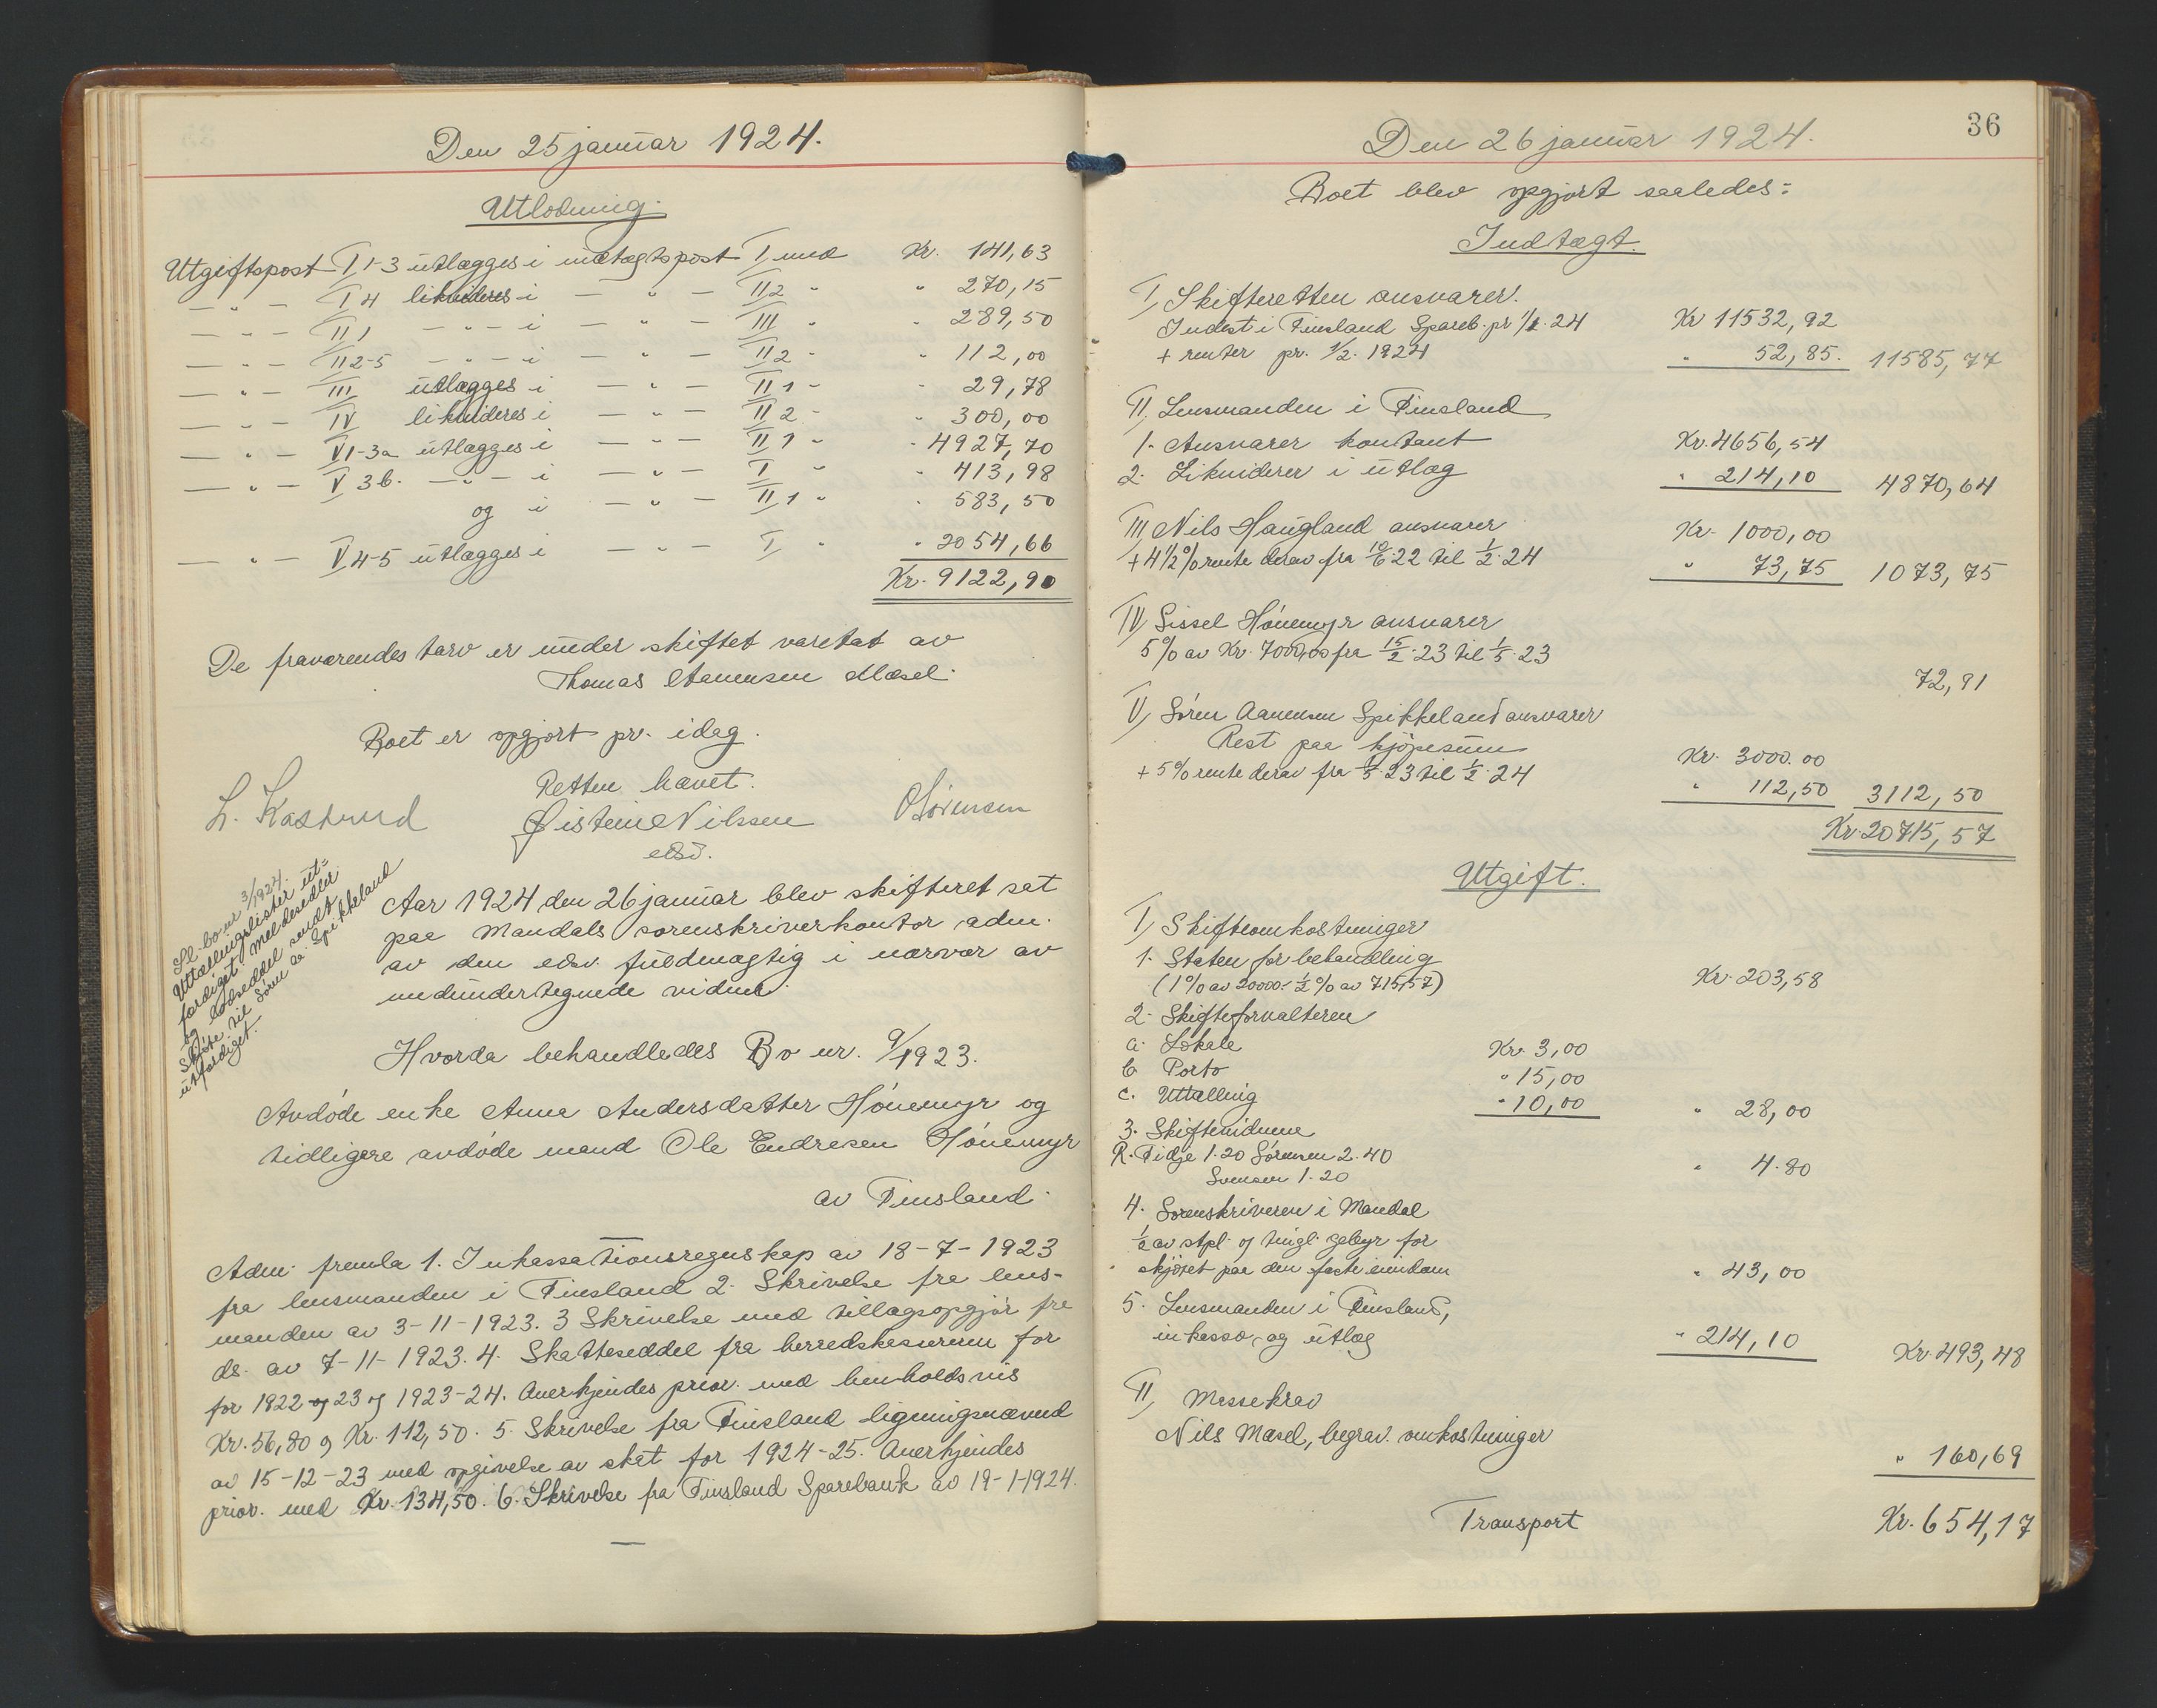 Den 25 januar 1924.
Utlodning.
Utgiftspost I 1-3 utlægges i indtægtspost I med Kr. 141,63
— " — I 4 likvideres i — " — II 2 " " 270,15
— " — II 1 — " — i — " — III " " 289,50
— " — II 2-5 — " — i — " — II 2 " " 112,00
— " — III utlægges i — " — II 1 " " 29,78
— " — IV likvideres i — " — II 2 " " 300,00
— " — V 1-3a utlægges i — " — II 1 " " 4927,70
— " — V 3b. — " — i — " — I " " 413,98
og i — " — II 1 " " 583,50
— " — V 4-5 utlægges i — " — I " " 2054,66
Kr. 9122,90
De fraværendes tarv er under skiftet varetat av
Thomas Aanensen Mæsel.
Boet er opgjort pr. idag.
Retten hævet.
L. Kastrud Øistein Nilssen O Sørensen
edsv.
Sl. bo nr 3/1924.
Uttællingslister ut-
færdiget. Meldesedler
og lodseddel sendt
Skjøte til Søren Aa Spikkeland
utfærdiget.
Aar 1924 den 26 januar blev skifteret sat
paa Mandals sorenskriverkontor adm.
av den edsv. fuldmægtig i nærvær av
medundertegnede vidner.
Hvorda behandledes Bo nr. 9/1923.
Avdøde enke Anne Andersdatter Hønemyr og
tidligere avdøde mand Ole Endresen Hønemyr
av Finsland.
Adm. fremla 1. Inkassationsregnskap av 18-7-1923
fra lensmanden i Finsland 2. Skrivelse fra lens-
manden av 3-11-1923. 3 Skrivelse med tillægsopgjør fra
ds. av 7-11-1923. 4. Skatteseddel fra herredskasseren for
for 1922 og 23 og 1923-24. Anerkjendes prior. med henholdsvis
Kr. 56,80 og Kr. 112,50. 5. Skrivelse fra Finsland ligningsnævnd
av 15-12-23 med opgivelse av skat for 1924-25. Anerkjendes
prior. med Kr. 134,50. 6. Skrivelse fra Finsland Sparebank av 19-1-1924.
36
Den 26 januar 1924.
Boet blev opgjort saaledes:
Indtægt.
I, Skifteretten ansvarer.
Indest i Finsland Spareb. pr 1/1. 24 Kr 11532,92
+ renter pr. 1/2. 1924 " 52,85. 11585,77
II, Lensmanden i Finsland
1. Ansvarer kontant Kr. 4656,54
2. Likviderer i utlæg " 214,10 4870,64
III, Nils Haugland ansvarer Kr. 1000,00
+ 4 1/2 % rente derav fra 10/6 22 til 1/2. 24 " 73,75 1073,75
IV, Sissel Hønemyr ansvarer
5 % av Kr. 7000,00 fra 15/2. 23 til 1/5. 23 72,91
V, Søren Aanensen Spikkeland ansvarer
Rest paa kjøpesum Kr. 3000.00
+ 5% rente derav fra 1/5. 23 til 1/2. 24 " 112,50 3112,50
Kr. 20715,57
Utgift.
I, Skifteomkostninger
1. Staten for behandling
(1% av 20000. 1/2 % av 715,57) Kr. 203,58
2. Skifteforvalteren
a. Lokale Kr. 3,00
b Porto " 15,00
c. Uttælling " 10,00 " 28,00
3. Skiftevidnene
R. Fidje 1.20 Sørensen 2.40
Svensen 1.20 " 4.80
4. Sorenskriveren i Mandal
1/2 av stpl. og tingl. gebyr for
skjøtet paa den faste eiendom " 43,00
5. Lensmanden i Finsland,
inkasso, og utlæg " 214,10 Kr. 493,48
II, Massekrav
Nils Mæsel, begrav. omkostninger " 160,69
Transport Kr. 654,17